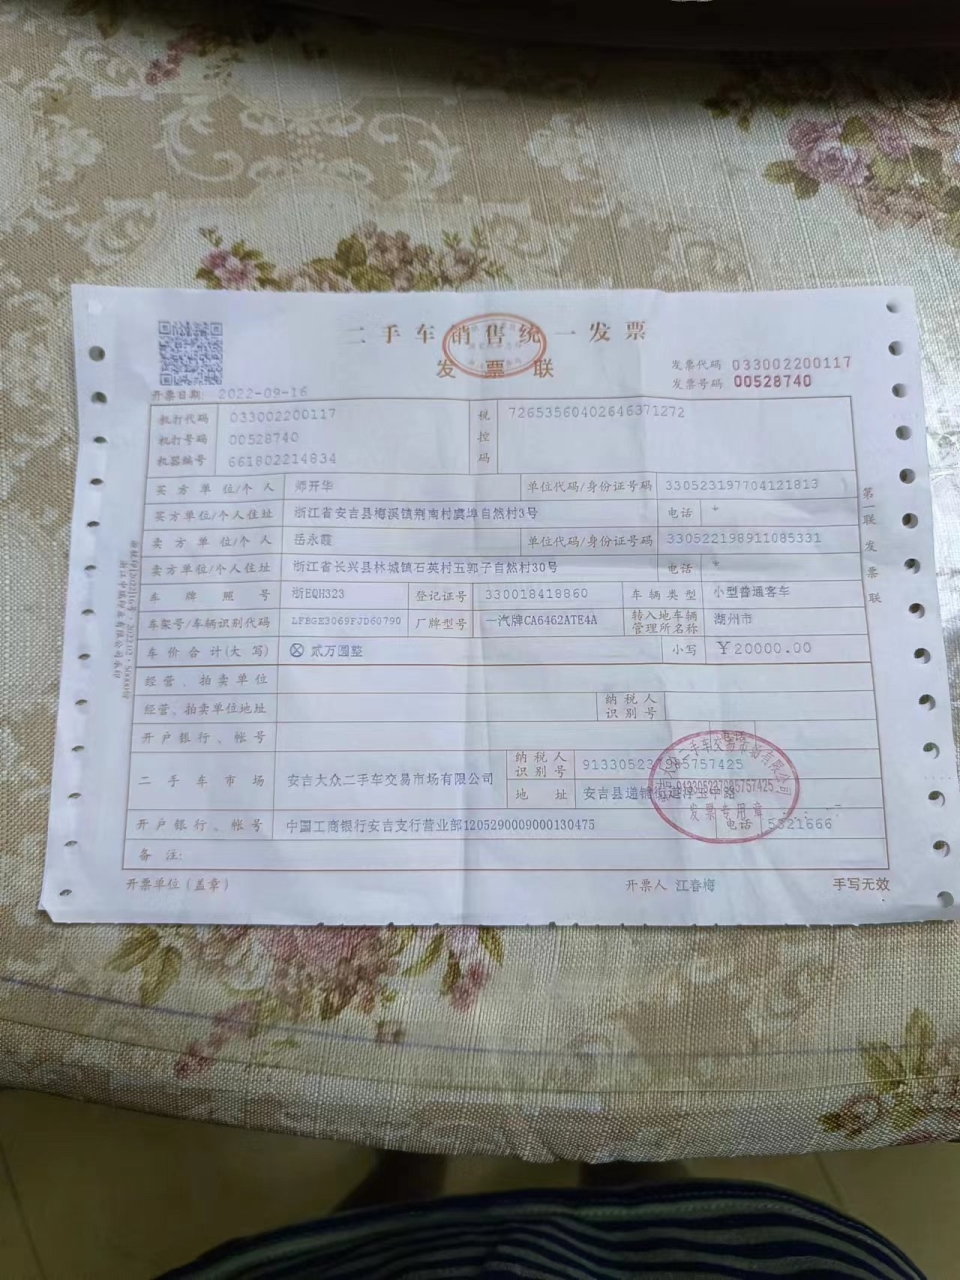 二手车销售统一发票
发票联
发票代码 033002200117
发票号码 00528740
开票日期: 2022-09-16
机打代码 033002200117
机打号码 00528740
机器编号 661802214834
税控码 72653560402646371272
买方单位/个人 师开华 单位代码/身份证号码 330523197704121813
买方单位/个人住址 浙江省安吉县梅溪镇荆南村 自然村3号 电话 *
卖方单位/个人 岳永霞 单位代码/身份证号码 330522198911085331
卖方单位/个人住址 浙江省长兴县林城镇石英村五郭子自然村30号 电话 *
车牌照号 浙EQH323 登记证号 330018418860 车辆类型 小型普通客车
车架号/车辆识别代码 LFBGE3069FJD60790 厂牌型号 一汽牌CA6462ATE4A 转入地车辆管理所名称 湖州市
车价合计(大写) ⊗ 贰万圆整 小写 ￥20000.00
经营、拍卖单位
经营、拍卖单位地址 纳税人识别号
开户银行、帐号 电话
二手车市场 安吉大众二手车交易市场有限公司 纳税人识别号 913305231985757425
地址 安吉县递铺街道 中路
开户银行、帐号 中国工商银行安吉支行营业部1205290009000130475 电话 5321666
备注:
开票单位(盖章) 开票人 江春梅 手写无效
第一联 发票联
发票专用章